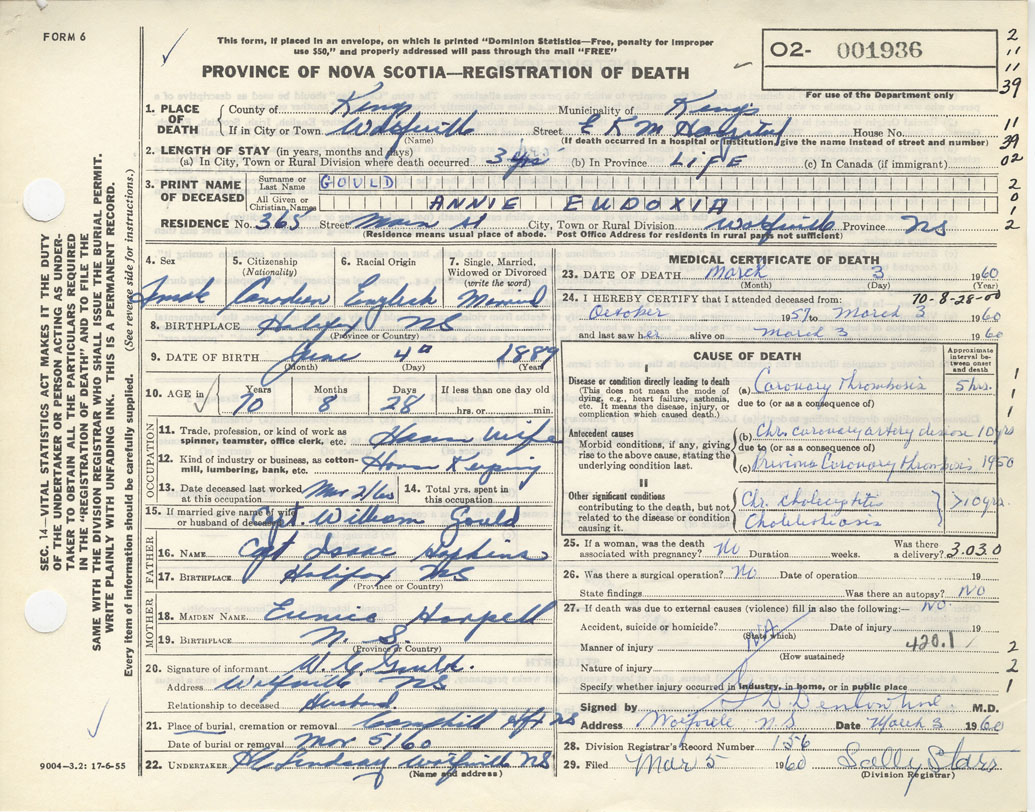 FORM 6
This form, if placed in an envelope, on which is printed "Dominion Statistics—Free, penalty for improper
use $50," and properly addressed will pass through the mail "FREE"
PROVINCE OF NOVA SCOTIA—REGISTRATION OF DEATH
02- 001936
For use of the Department only
2
11
11
39
11
39
02
2
0
1
2
1. PLACE OF DEATH { County of Kings Municipality of Kings
If in City or Town Wolfville Street E K M Hospital House No.
(Name) (If death occurred in a hospital or institution, give the name instead of street and number)
2. LENGTH OF STAY (in years, months and days)
(a) In City, Town or Rural Division where death occurred 3 yrs (b) In Province LIFE (c) In Canada (if immigrant)
3. PRINT NAME OF DECEASED { Surname or Last Name GOULD
All Given or Christian Names ANNIE EUDOXIA
RESIDENCE No. 365 Street Main St City, Town or Rural Division Wolfville Province NS
(Residence means usual place of abode. Post Office Address for residents in rural parts not sufficient)
SEC. 14—VITAL STATISTICS ACT MAKES IT THE DUTY
OF THE UNDERTAKER OR PERSON ACTING AS UNDER-
TAKER TO OBTAIN ALL THE PARTICULARS REQUIRED
IN THE "REGISTRATION OF DEATH" AND TO FILE THE
SAME WITH THE DIVISION REGISTRAR WHO SHALL ISSUE THE BURIAL PERMIT.
WRITE PLAINLY WITH UNFADING INK. THIS IS A PERMANENT RECORD.
Every item of information should be carefully supplied. (See reverse side for instructions.)
4. Sex 5. Citizenship (Nationality) 6. Racial Origin 7. Single, Married, Widowed or Divorced (write the word)
Canadian English Married
8. BIRTHPLACE Halifax NS
(Province or Country)
9. DATE OF BIRTH June 4 1889
(Month) (Day) (Year)
10. AGE in Years Months Days If less than one day old
70 8 28 hrs. or min.
OCCUPATION
11. Trade, profession, or kind of work as
spinner, teamster, office clerk, etc. House Wife
12. Kind of industry or business, as cotton-
mill, lumbering, bank, etc. House Keeping
13. Date deceased last worked
at this occupation Mar 2/60
14. Total yrs. spent in
this occupation
15. If married give name of wife
or husband of deceased Cpt. William Gould
FATHER
16. NAME Cpt Isaac Hopkins
17. BIRTHPLACE Halifax NS
(Province or Country)
MOTHER
18. MAIDEN NAME Eunice Harpell
19. BIRTHPLACE N. S.
(Province or Country)
20. Signature of informant W. E. Gould.
Address Wolfville NS
Relationship to deceased Husband.
21. Place of burial, cremation or removal NS
Date of burial or removal Mar 5/60
22. UNDERTAKER Lindsay Wolfville NS
(Name and address)
9004—3.2: 17-6-55
MEDICAL CERTIFICATE OF DEATH
23. DATE OF DEATH March 3 1960
(Month) (Day) (Year)
24. I HEREBY CERTIFY that I attended deceased from: 70-8-28-00
October 1957 to March 3 1960
and last saw her alive on March 3 1960
CAUSE OF DEATH
Approximate interval between onset and death
I
Disease or condition directly leading to death
(This does not mean the mode of
dying, e.g., heart failure, asthenia,
etc. It means the disease, injury, or
complication which caused death.)
(a) Coronary thrombosis 5 hrs.
due to (or as a consequence of)
Antecedent causes
Morbid conditions, if any, giving
rise to the above cause, stating the
underlying condition last.
(b) Chr. coronary artery disease 10 yrs
due to (or as a consequence of)
(c) Previous Coronary thrombosis 1950
II
Other significant conditions
contributing to the death, but not
related to the disease or condition
causing it.
Chr. Cholecystitis
Cholelithiasis } >10 yrs.
1
1
1
1
1
25. If a woman, was the death
associated with pregnancy? No Duration weeks. Was there
a delivery? 3.030
26. Was there a surgical operation? No Date of operation 19
State findings Was there an autopsy? No
27. If death was due to external causes (violence) fill in also the following:— No.
Accident, suicide or homicide? NA Date of injury 19
(State which)
Manner of injury 420.1
(How sustained?)
Nature of injury
Specify whether injury occurred in industry, in home, or in public place
2
2
1
Signed by M.D.
Address Wolfville N.S Date March 3 1960
28. Division Registrar's Record Number 156
29. Filed Mar 5 1960 Sally Starr
(Division Registrar)